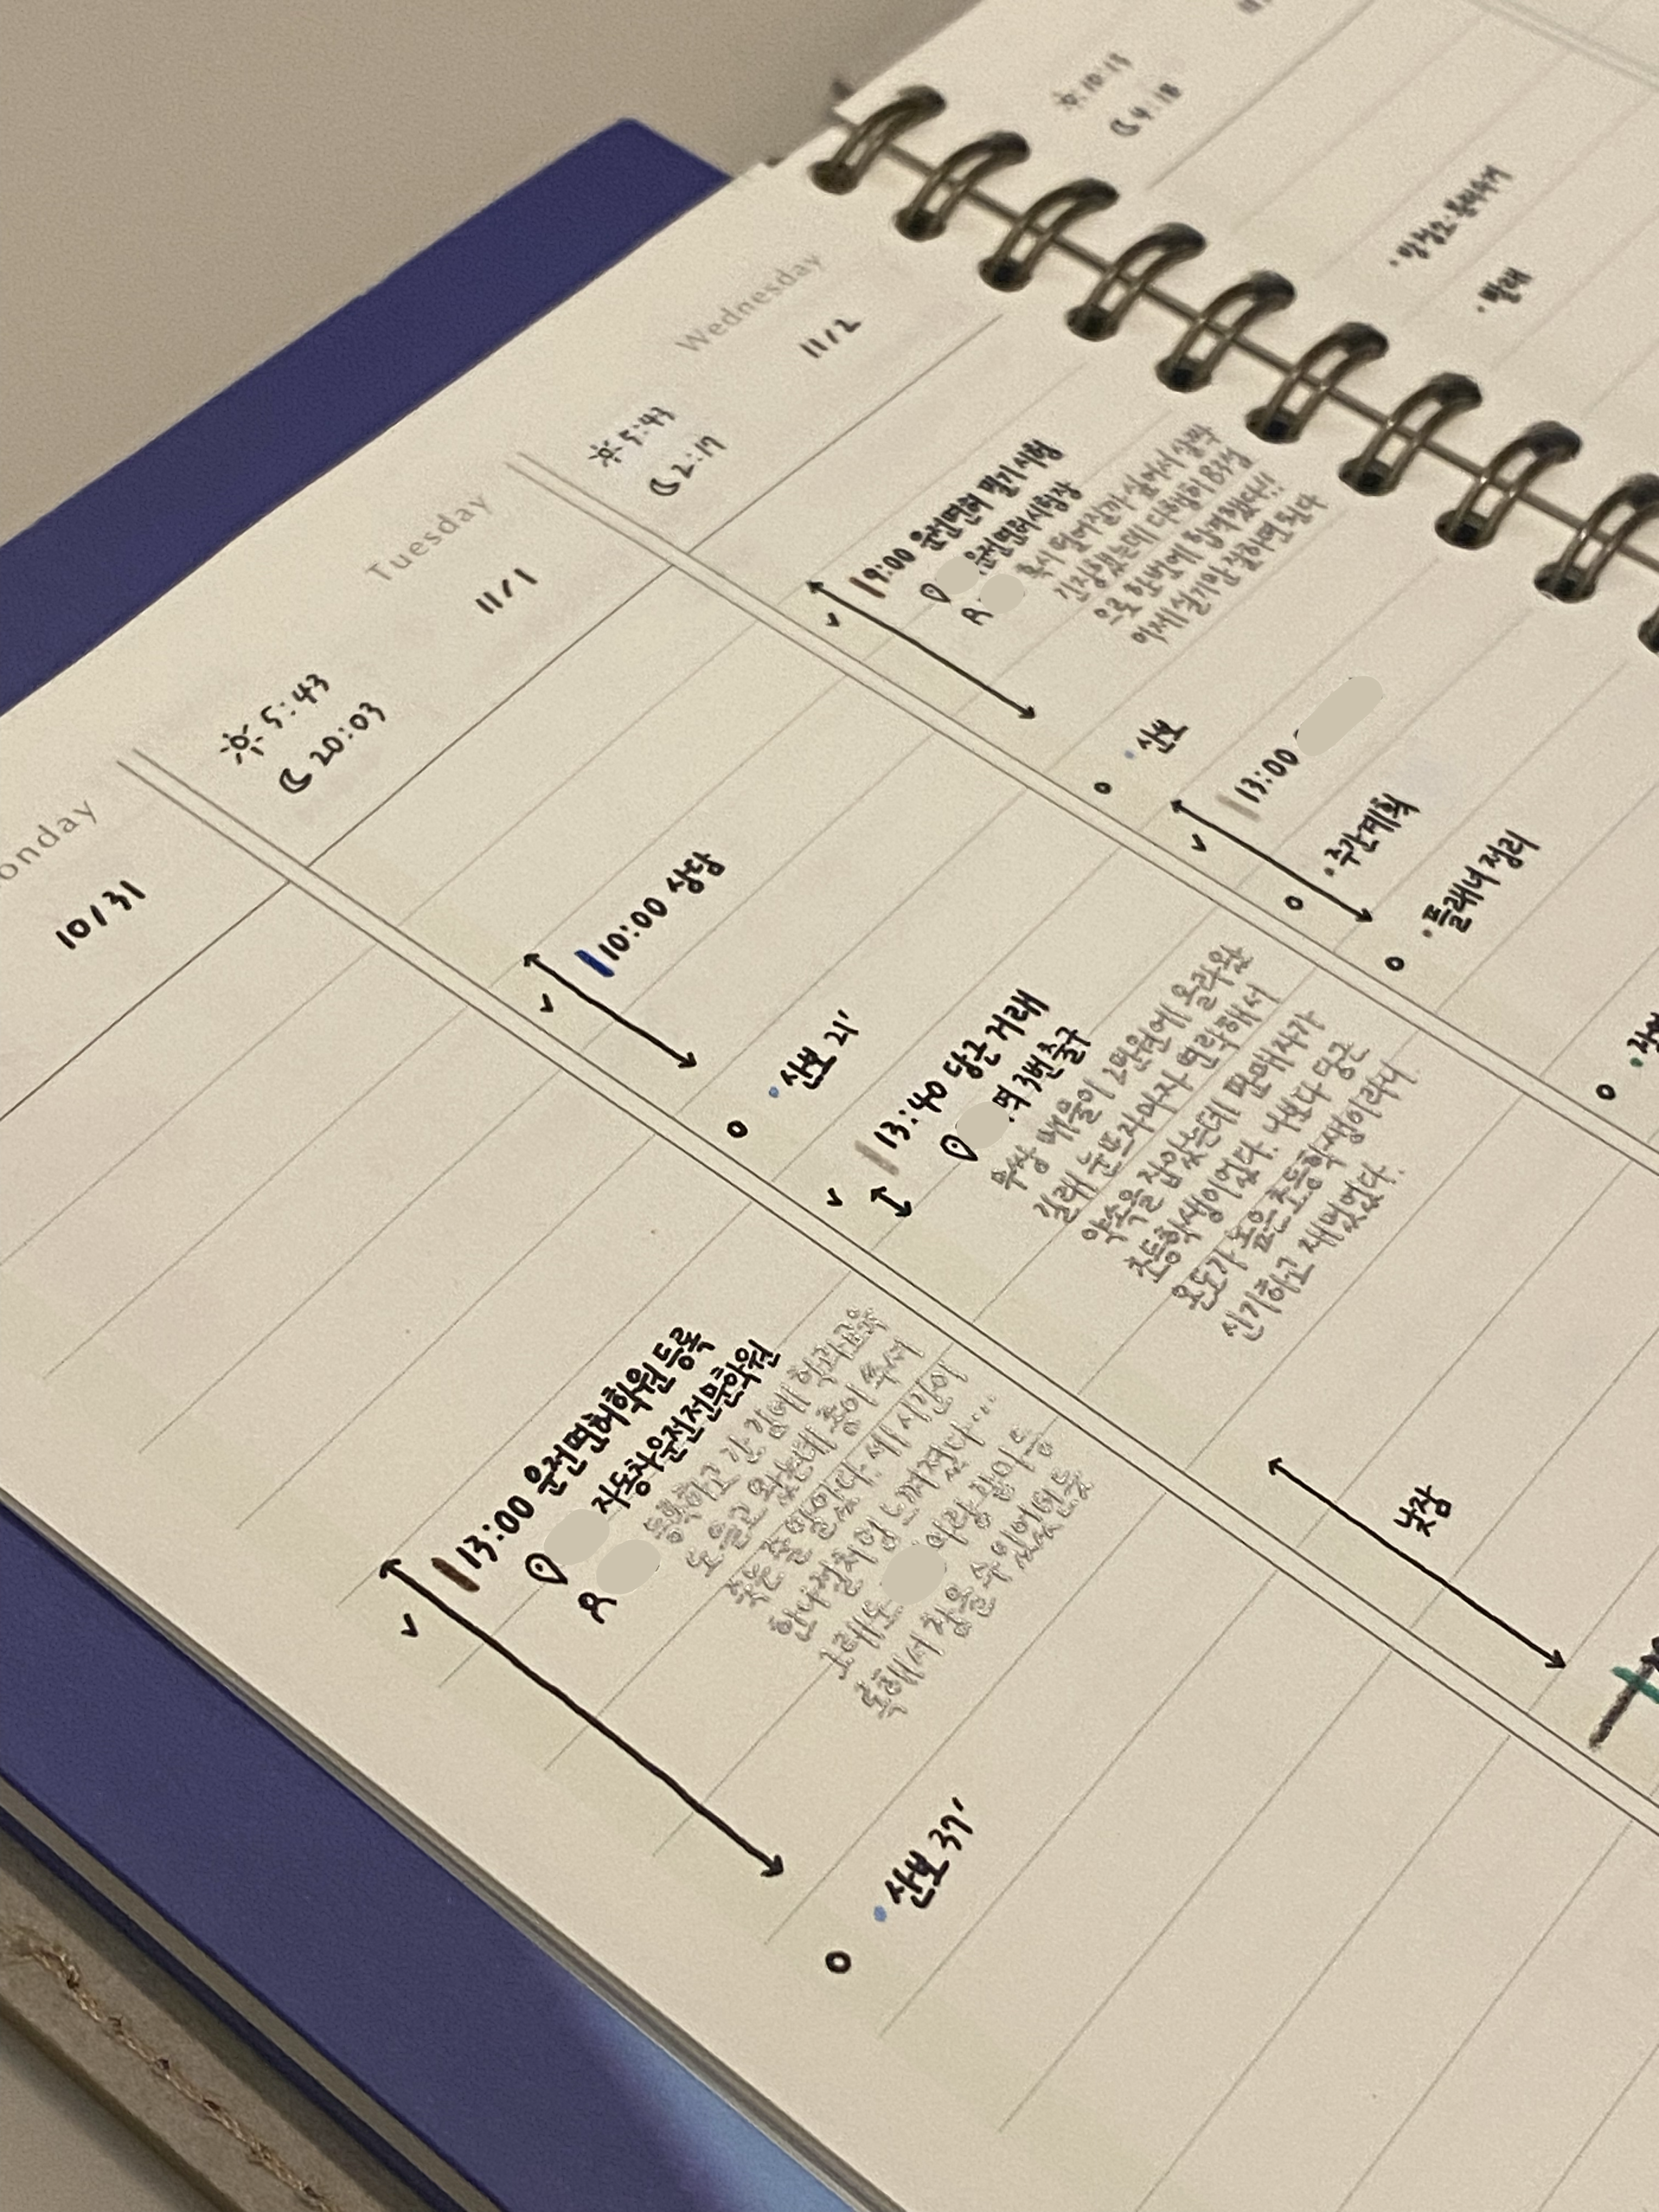 onday
10/31
13:00 운전면허학원 등록
자동차운전전문학원
등록하고 간 김에 학과교육
도 듣고 왔는데 종이 쪽지
한나절처럼 느껴졌다...
그래도 이랑 같이 등
록해서 참을 수 있었던 듯
산보 37'
Tuesday
11/1
5:43
20:03
10:00 상담
산보 21'
13:40 당근거래
역 3번 출구
무상 매물이 2만원에 올라왔
길래 눈뜨자마자 연락해서
약속을 잡았는데 판매자가
초등학생이었다. 나보다 당근
온도가 높은 초등학생이라니
신기하고 재밌었다.
낮잠
Wednesday
11/2
5:43
2:17
9:00 운전면허 필기시험
운전면허시험장
혹시 떨어질까 싶어서 살짝
긴장했는데 다행히 83점
으로 한번에 합격했다!!
이제 실기만 잘하면 된다
산보
13:00
주간계획
플래너 정리
10:13
4:18
빨래